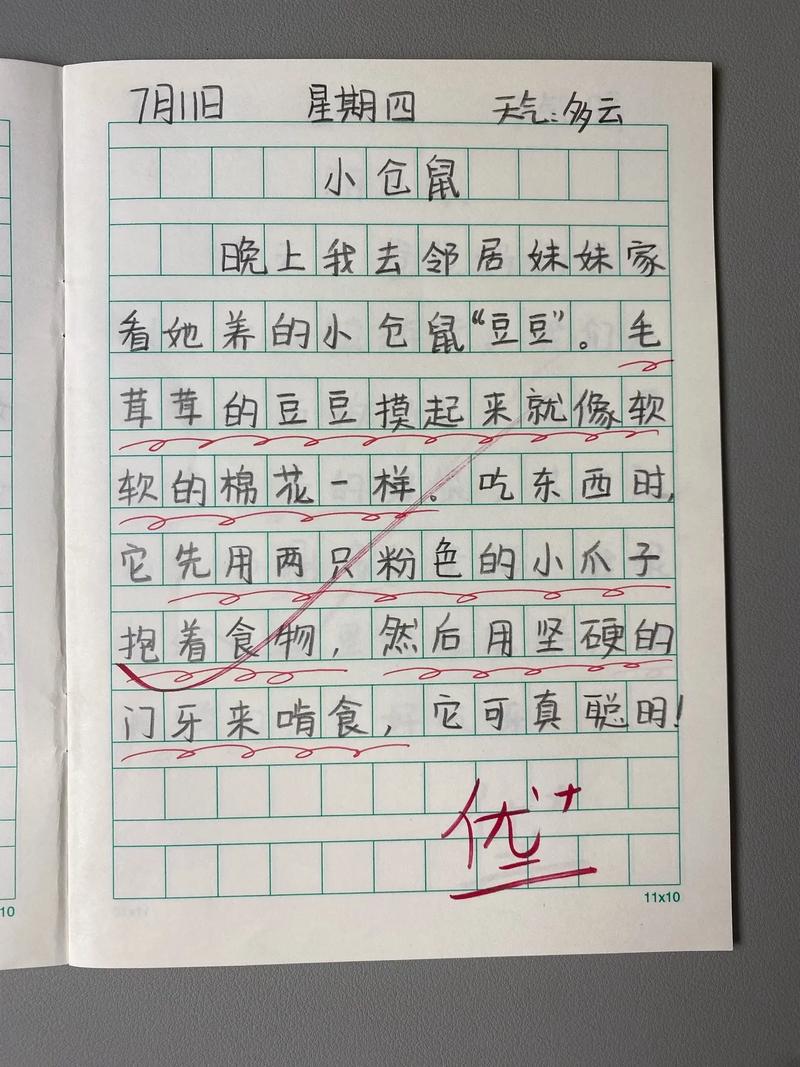 7月11日 星期四 天气:多云
小仓鼠
晚上我去邻居妹妹家
看她养的小仓鼠“豆豆”。毛
茸茸的豆豆摸起来就像软
软的棉花一样。吃东西时,
它先用两只粉色的小爪子
抱着食物,然后用坚硬的
门牙来啃食,它可真聪明!
优+
11x10
10